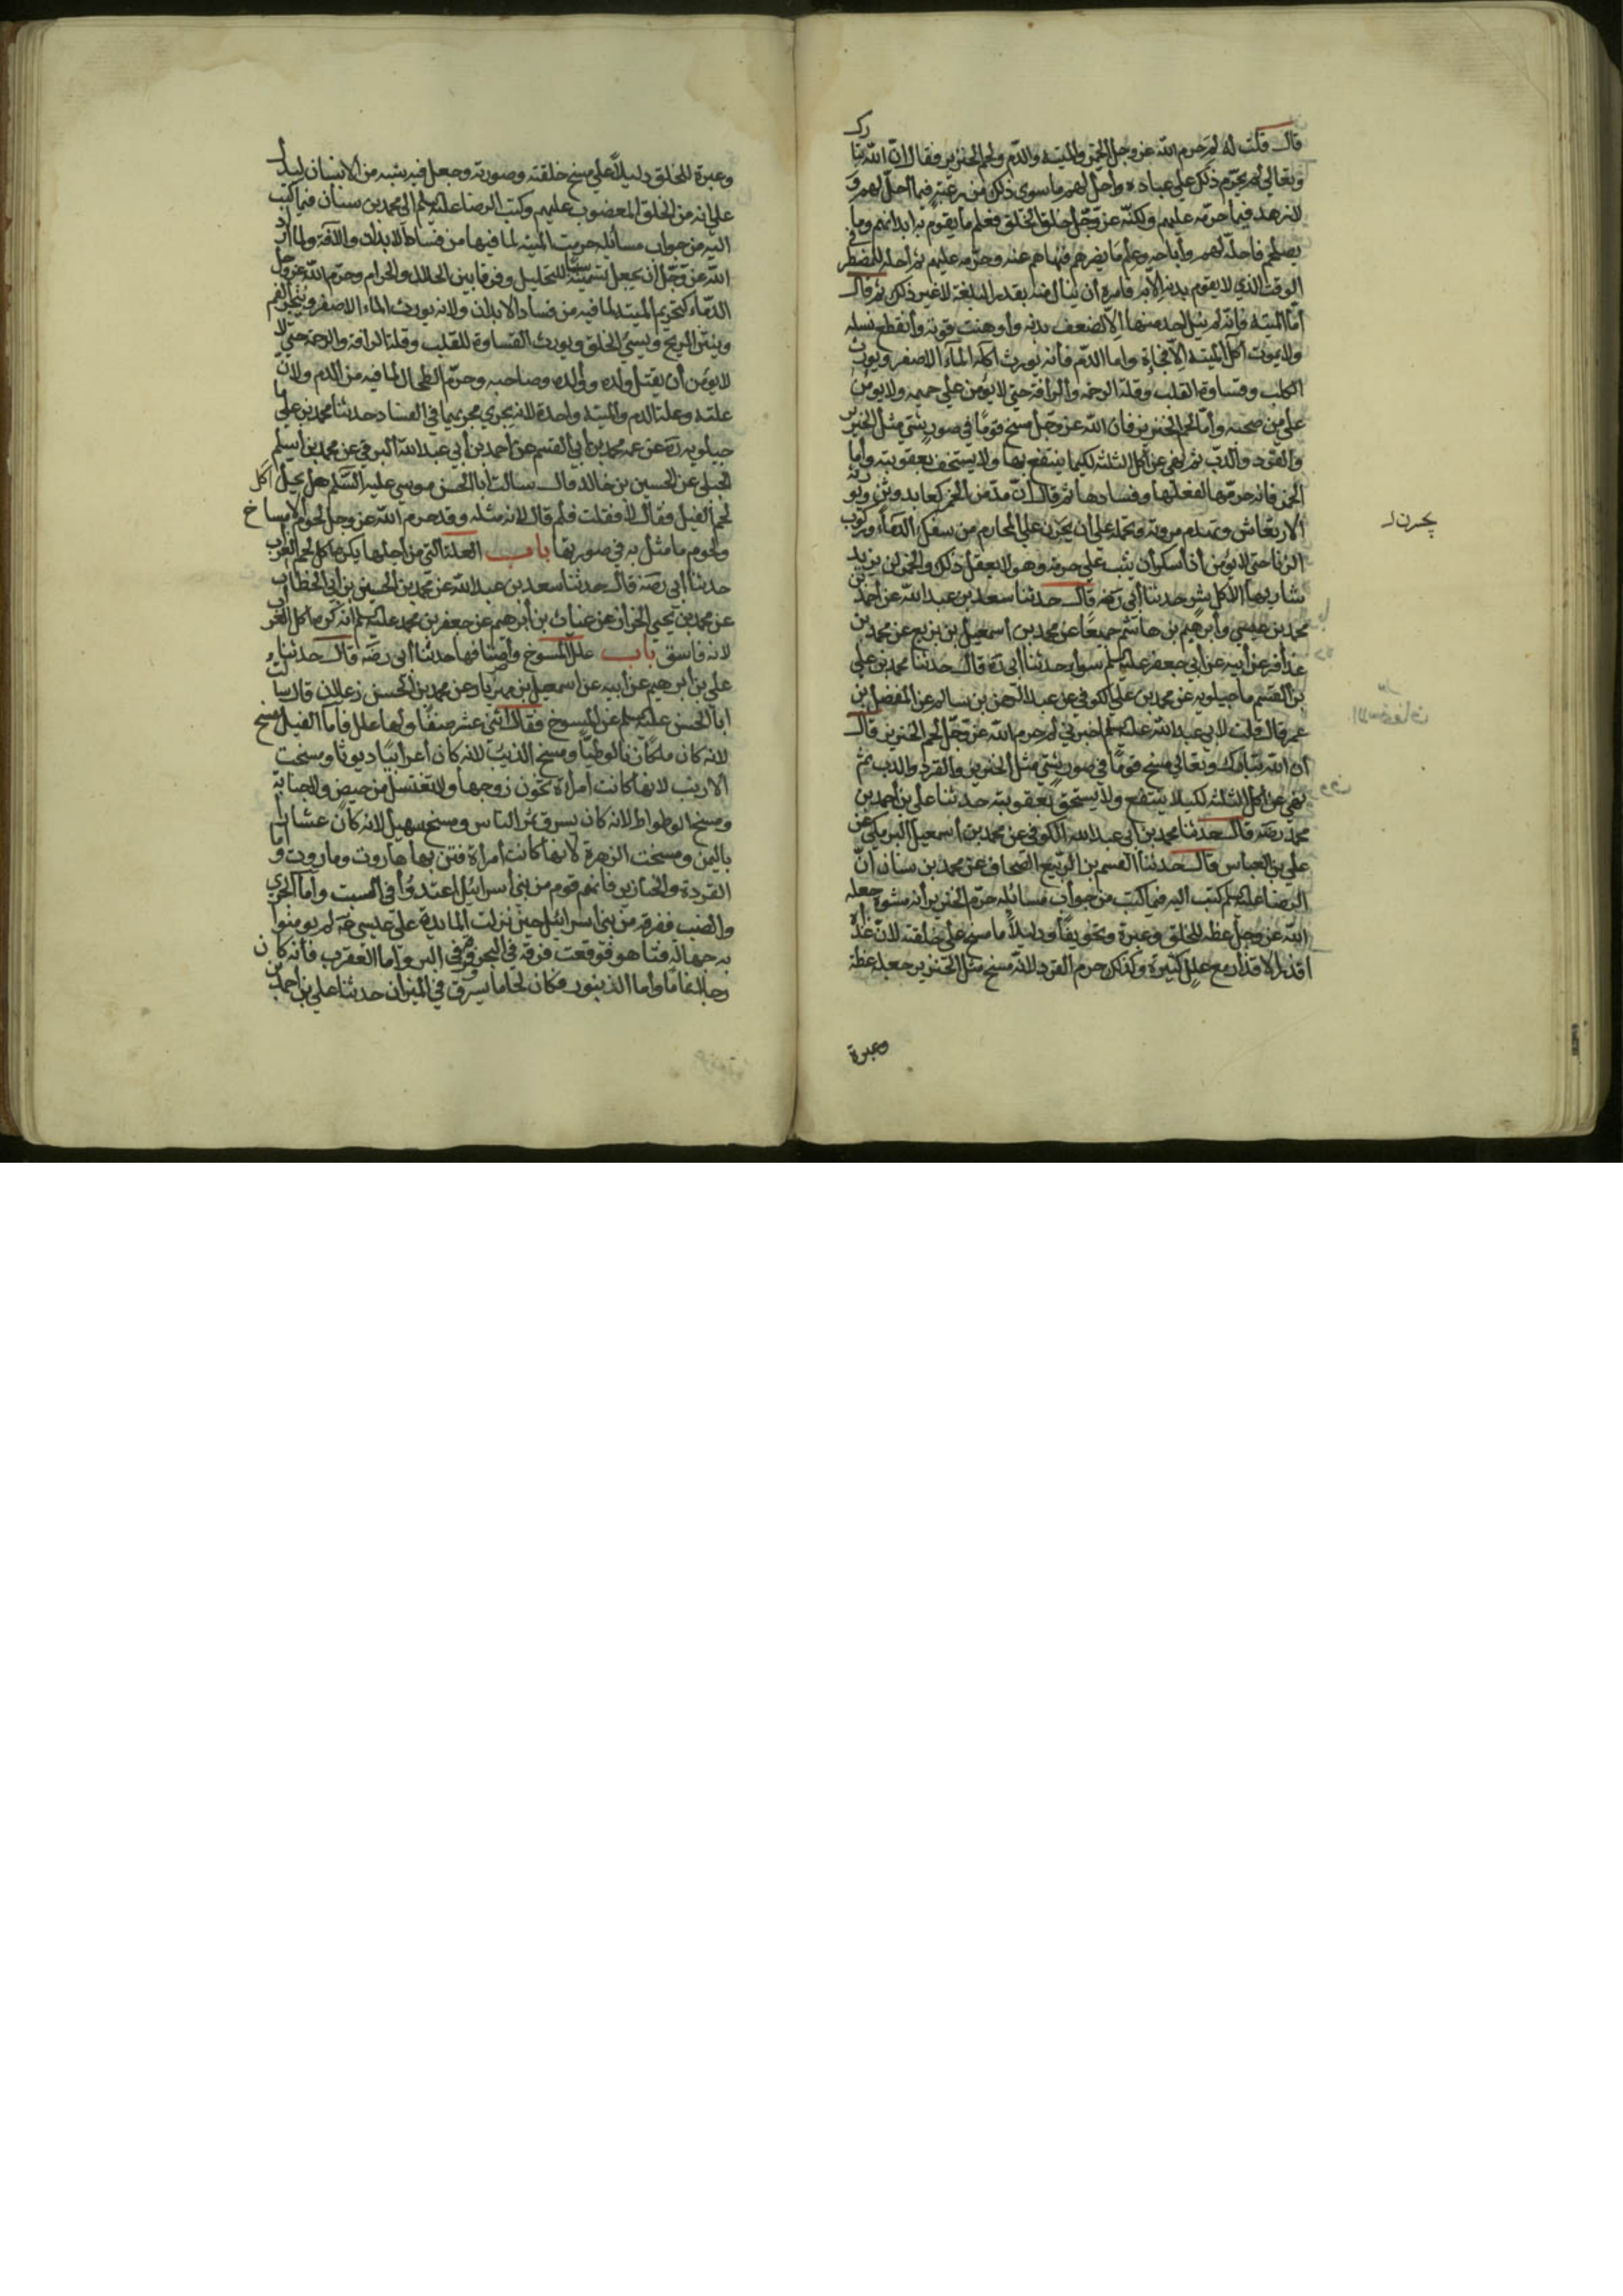 قال قلت له لم حرم الله عز وجل الخمر والميتة والدم ولحم الخنزير فقال ان الله تبارك
وتعالى لم يحرم ذلك على عباده وأحل لهم ما سوى ذلك من رغبة فيما أحل لهم و
لا زهد فيما حرمه عليهم ولكنه عز وجل خلق الخلق فعلم ما يقوم به ابدانهم وما
يصلحهم فاحله لهم وأباحه وعلم ما يضرهم فنهاهم عنه وحرمه عليهم ثم احله للمضطر في
الوقت الذي لا يقوم بدنه الا به فامره أن ينال منه بقدر البلغة لا غير ذلك ثم قال
أما الميتة فانه لم ينل احد منها الا لضعف بدنه وأوهنت قوته وأنقطع نسله
ولا يموت آكل الميتة الا فجاءة واما الدم فأنه يورث اكله الماء الاصفر ويورث
الكلب وقساوة القلب وقلة الرحمة والرأفة حتى لا يؤمن على حميمه ولا يؤمن
على من صحبه وأما لحم الخنزير فان الله عز وجل مسخ قوما في صور شتى مثل الخنزير
والقرد والدب ثم نهى عن اكل الثلثة لكيما ينتفع بها ولا يستخف بعقوبته وأما
الخمر فانه حرمها لفعلها وفسادها ثم قال ان مدمن الخمر كعابد وثن وتورثه
الارتعاش وتهدم مروته وتحمله على ان يجسر على المحارم من سفك الدماء وركوب
الزنا حتى لا يؤمن أذا أسكر أن يثب على حرمه وهو لا يعقل ذلك والخمر لن يزيد
شاربها الا كل شر حدثنا أبي رضه قال حدثنا سعد بن عبد الله عن أحمد بن
محمد بن عيسى وأبرهيم بن هاشم جميعا عن محمد بن اسمعيل بن بزيع عن محمد بن
عذافر عن أبيه عن أبي جعفر عليه السلم سواء حدثنا أبي ره قال حدثنا محمد بن علي
بن القسم ماجيلويه عن محمد بن علي الكوفي عن عبد الرحمن بن سالم عن المفضل بن
عمر قال قلت لابي عبد الله عليه السلم اخبرني لم حرم الله عز وجل لحم الخنزير قال
أن الله تبارك وتعالى مسخ قوما في صور شتى مثل الخنزير والقرد والدب ثم
نهى عن اكل الثلثة لكيلا ينتفع ولا يستحق بعقوبته حدثنا علي بن أحمد بن
محمد رضه قال حدثنا محمد بن أبي عبد الله الكوفي عن محمد بن أسمعيل البرمكي عن
علي بن العباس قال حدثنا القسم بن الربيع الصحاف عن محمد بن سنان انّ
الرضا عليه السلم كتب اليه فيما كتب من جواب مسائله حرم الخنزير أنه مشوه جعله
الله عز وجل عظة للخلق وعبرة وتخويفا ودليلا ما مسخ على خلقته لان غذاه
اقذر الاقذار مع علل كثيرة وكذلك حرم القرد لانه مسخ مثل الخنزير جعله عظة
وعبرة
وعبرة للخلق دليلا على مسخ خلقته وصورته وجعل فيه شبه من الانسان ليدل
على انه من الخلق المغضوب عليهم وكتب الرضا عليه السلم الى محمد بن سنان فيما كتب
اليه من جواب مسائله حرمت الميتة لما فيها من فساد الابدان والآفة ولما أراد
الله عز وجل أن يجعل تسميته سببا للتحليل وفرقا بين الحلال والحرام وحرم الله عز وجل
الدماء كتحريم الميتة لما فيه من فساد الابدان ولانه يورث الماء الاصفر ويبخر الفم
وينتن الريح ويسئ الخلق ويورث القساوة للقلب وقلة الرأفة والرحمة حتى لا
لا يؤمن أن يقتل ولده ووالده وصاحبه وحرم الطحال لما فيه من الدم ولان
علته وعلة الدم والميتة واحدة لانه يجري مجريها في الفساد حدثنا محمد بن علي ما
جيلويه ره عن عمه محمد بن أبي القسم عن احمد بن أبي عبد الله البرقي عن محمد بن أسلم
الجبلي عن الحسين بن خالد قال سالت أبا الحسن موسى عليه السلم هل يحل أكل
لحم الفيل فقال لا فقلت فلم قال لانه مثله وقد حرم الله عز وجل لحوم الامساخ
ولحوم ما مثل به في صورتها باب العلة التي من أجلها يكره أكل لحم الغراب
حدثنا أبي رضه قال حدثنا سعد بن عبد الله عن محمد بن الحسين بن أبي الخطاب
عن محمد بن يحيى الخزاز عن غياث بن أبرهيم عن جعفر بن محمد عليه السلم انه كره أكل الغراب
لانه فاسق باب علل المسوخ وأصنافها حدثنا أبي رضه قال حدثنا
علي بن أبرهيم عن أبيه عن اسمعيل بن مهزيار عن محمد بن الحسن زعلان قال سالت
أبا الحسن عليه السلم عن المسوخ فقال اثنى عشر صنفا ولها علل فأما الفيل مسخ
لانه كان ملكا زنا لوطيا ومسخ الذيب لانه كان أعرابيا ديوثا ومسخت
الارنب لانها كانت أمراة تخون زوجها ولا تغتسل من حيض ولا جنابة
ومسخ الوطواط لانه كان يسرق تمر الناس ومسخ سهيل لانه كان عشارا
باليمن ومسخت الزهرة لانها كانت أمراة فتن بها هاروت وماروت وأما
القردة والخنازير فانهم قوم من بني أسرائيل اعتدوا في السبت وأما الجري
والضب ففرقة من بني أسرائيل حين نزلت المائدة على عيسى عه لم يومنوا
به جهالة فتاهوا فوقعت فرقة في البحر وفرقة في البر وأما العقرب فأنه كان
رجلا نماما وأما الذنبور فكان لحاما يسرق في الميزان حدثنا علي بن أحمد بن